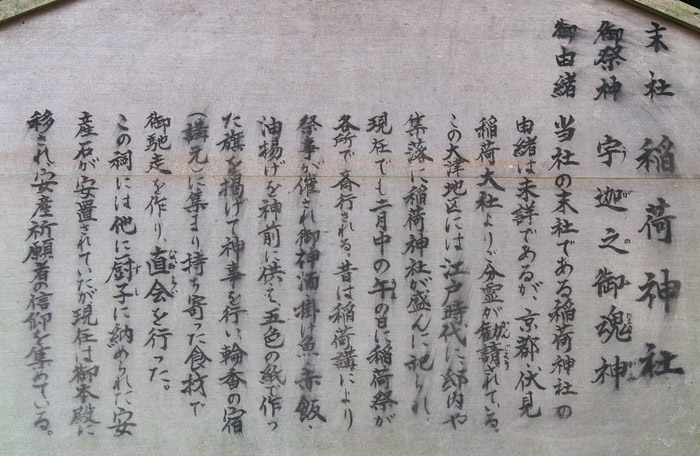 末社 稲荷神社
御祭神 宇迦之御魂神
御由緒 当社の末社である稲荷神社の
由緒は未詳であるが、京都伏見
稲荷大社より分霊が勧請されている。
この大津地区には江戸時代に邸内や
集落に稲荷神社が盛んに祀られ、
現在でも二月中の午の日に稲荷祭が
各所で斎行される。昔は稲荷講により
祭事が催され御神酒、掛け魚、赤飯、
油揚げを神前に供え、五色の紙で作っ
た旗を掲げて神事を行い、輪番の宿
(講元)に集まり持ち寄った食材で
御馳走を作り、直会を行った。
この祠には他に厨子に納められた安
産石が安置されていたが現在は御本殿に
移され、安産祈願者の信仰を集めている。